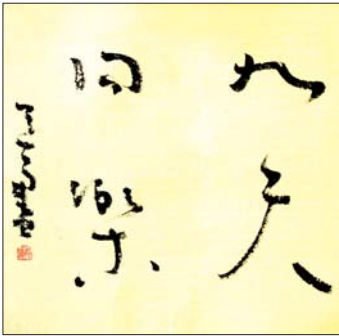 九天
同樂